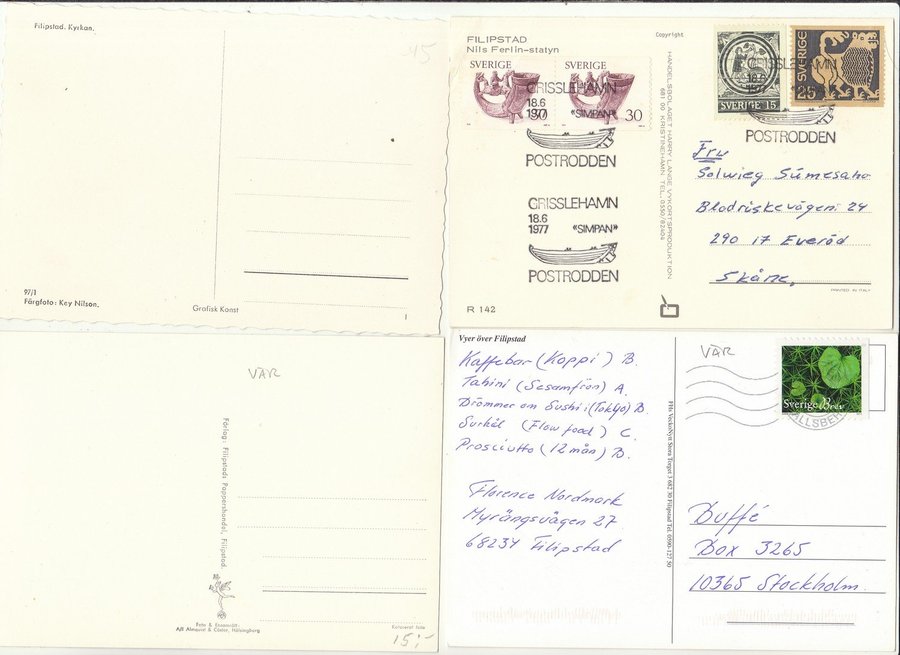 Filipstad. Kyrkan.
45
97/1
Färgfoto: Key Nilson.
Grafisk Konst
1
FILIPSTAD
Nils Ferlin-statyn
Copyright
SVERIGE
30
SVERIGE
30
GRISSLEHAMN
18.6
1977 «SIMPAN»
POSTRODDEN
GRISSLEHAMN
18.6
1977 «SIMPAN»
POSTRODDEN
HANDELSBOLAGET HARRY LANGE VYKORTSPRODUKTION
681 00 KRISTINEHAMN TEL. 0550/82404
SVERIGE 15
SVERIGE
25
GRISSLEHAMN
18.6
1977
POSTRODDEN
Fru
Solwieg
24
290 17 Everöd
Skåne.
PRINTED IN ITALY
R 142
VAR
Förlag: Filipstads Pappershandel, Filipstad.
Foto & Ensamrätt:
AB Almquist & Cöster, Hälsingborg
15:-
Vyer över Filipstad
Kaffebar (Koppi) B.
Tahini (Sesamfrön) A
Drömmer om Sushi (Tokyo) B.
Surkål (Flow food) C.
Prosciutto (12 mån) B.
Florence Nordmark
Myrängsvägen 27
68234 Filipstad
VAR
Sverige Brev
Buffé
Box 3265
10365 Stockholm